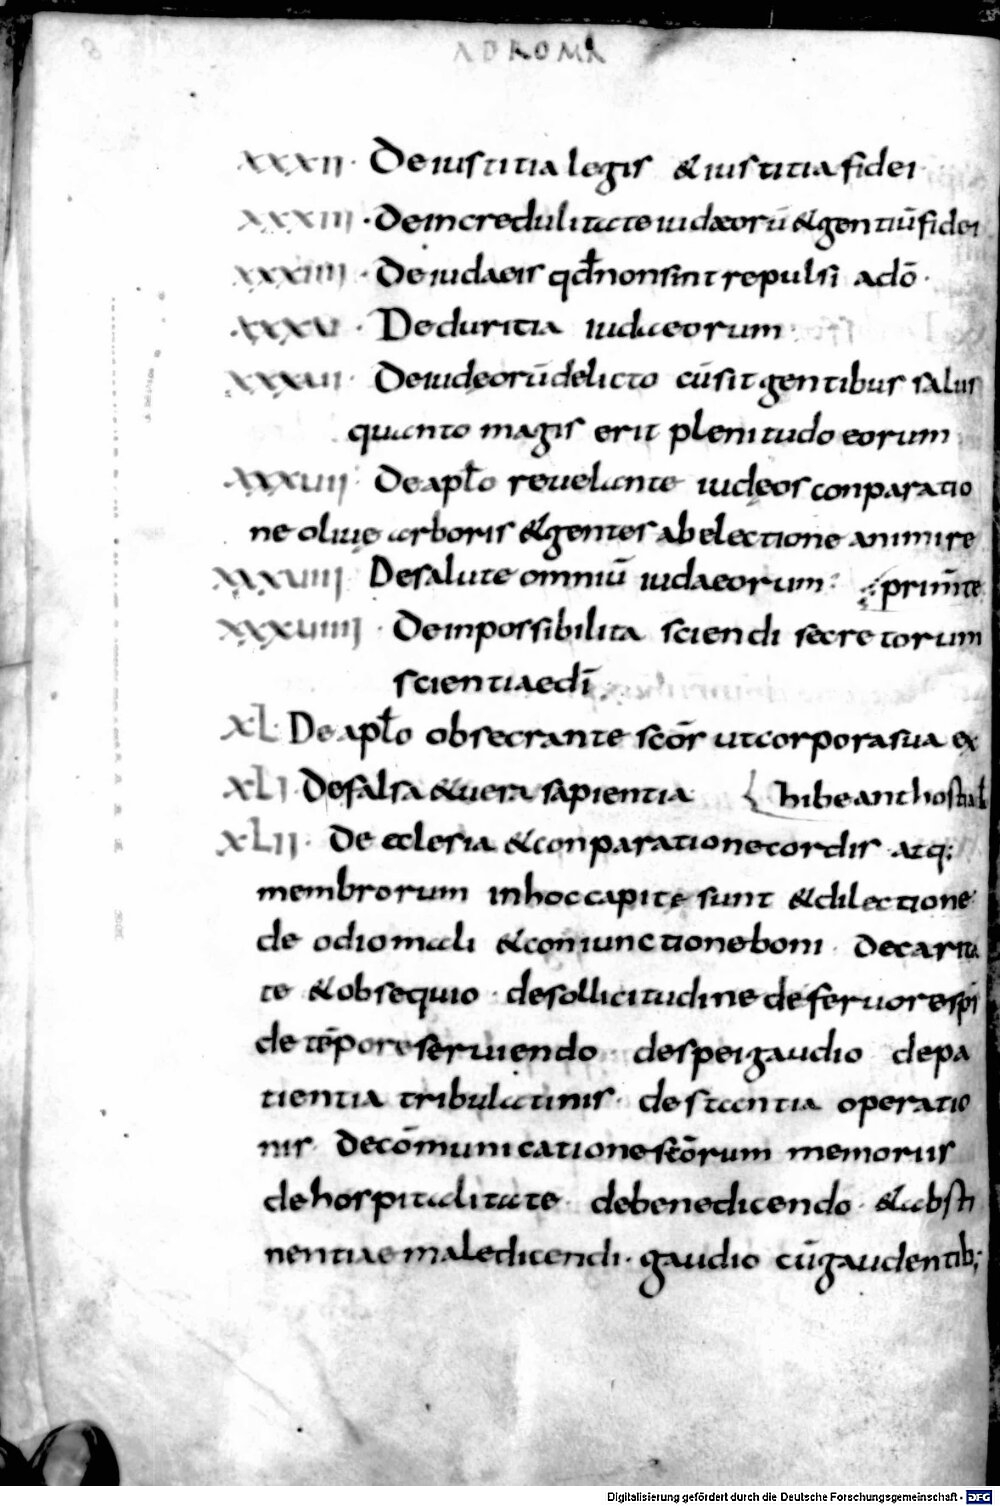 AD ROMA
XXXII · De iustitia legis & iustitia fidei ·
XXXIII · De incredulitate iudæorū & gentiū fidei
XXXIIII · De iudaeis qđ non sint repulsi a dō ·
XXXV · De duritia iudaeorum
XXXVI · De iudeorū delicto cū sit gentibus salus
quanto magis erit plenitudo eorum
XXXVII · De apƚo reuelante iudeos conparatio
ne oliuę arboris & gentes ab electione animire
XXXVIII De salute omniū iudaeorum : prim̄te
XXXVIIII · De inpossibilita sciendi secretorum
scientiae dī
XL · De apƚo obsecrante scōr ut corpora sua ex
XLI · De falsa & uera sapientia hibeant hostial
XLII · De eclesia & conparatione cordis atq;
membrorum in hoc capite sunt & dilectione
de odio mali & coniunctione boni · De carita
te & obsequio · de sollicitudine de feruore spī
de tēpore seruiendo de spei gaudio de pa
tientia tribulatinis · de stantia operatio
nis · De cōmunicatione scōrum memoriis
de hospitalitate · de benedicendo · & absti
nentiae maledicendi · gaudio cū gaudentib;
Digitalisierung gefördert durch die Deutsche Forschungsgemeinschaft - DFG